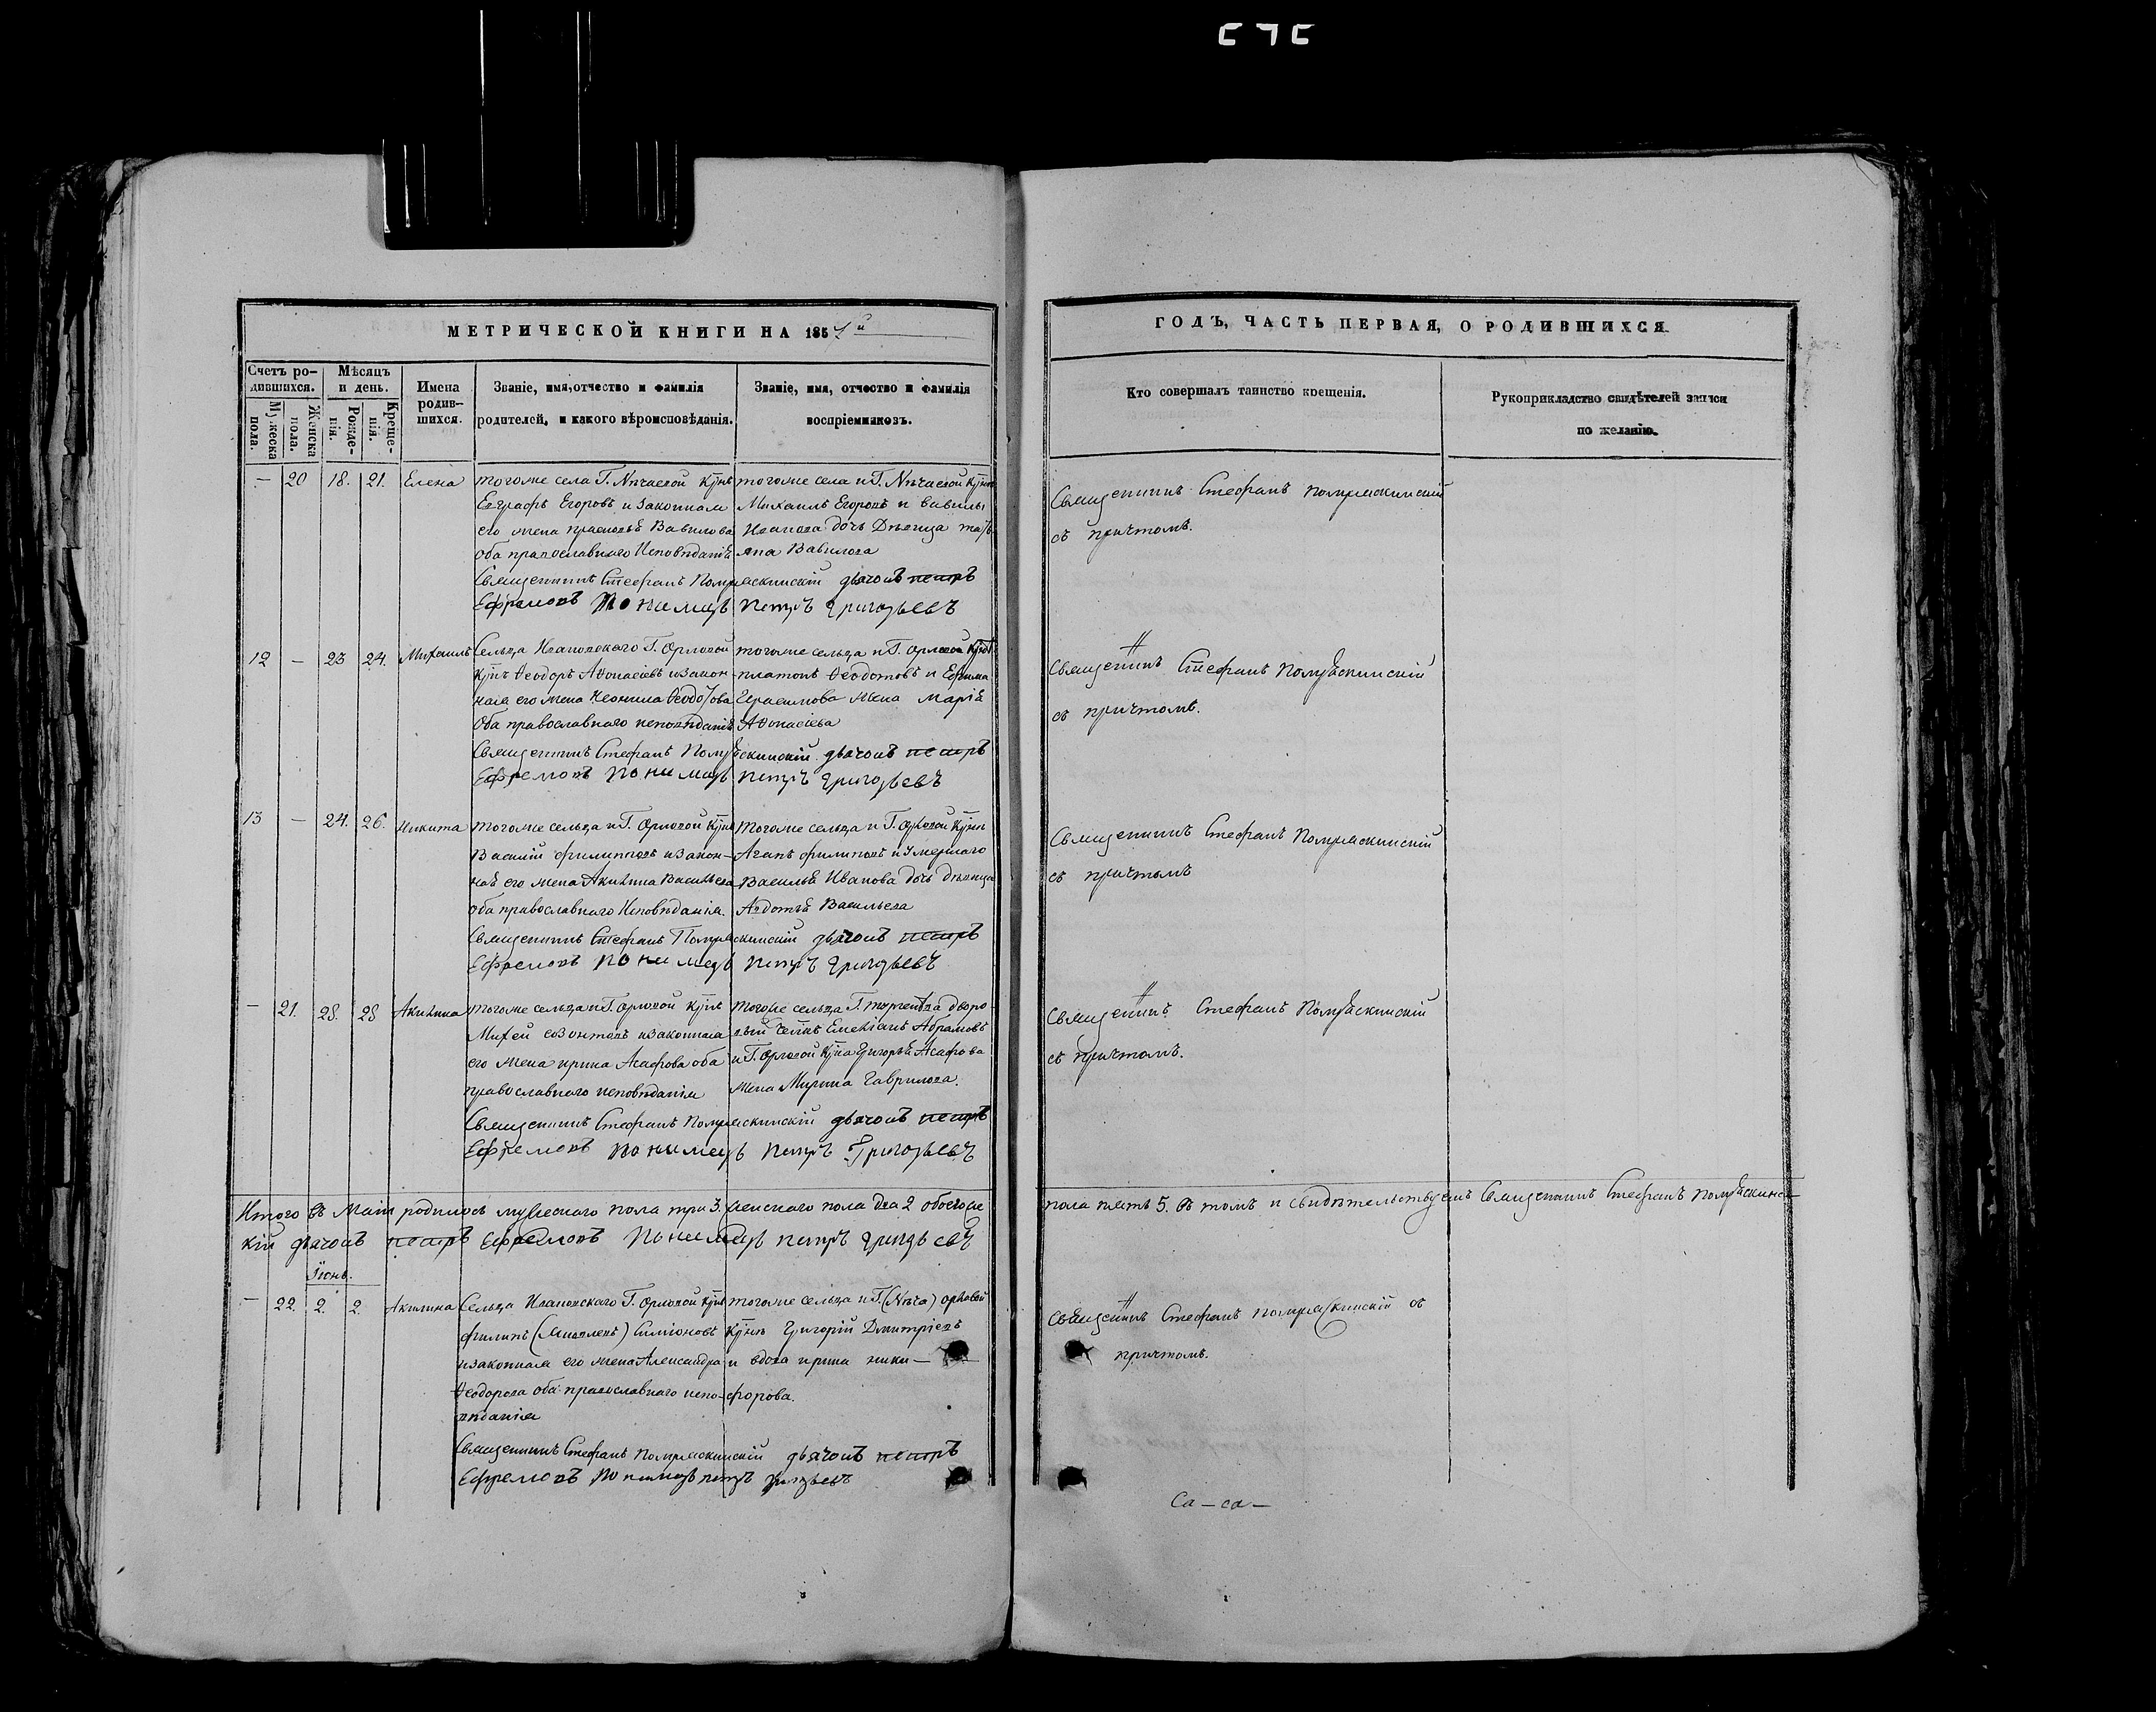 МЕТРИЧЕСКОЙ КНИГИ НА 185
ГОДЪ, ЧАСТЬ ПЕРВАЯ, О РОДИВШИХСЯ
Счетъ ро-
дившихся.
Мужеска пола.
Женска пола.
Мѣсяцъ
и день.
Рожде-
нія.
Креще-
нія.
Имена
родив-
шихся.
Званіе, имя, отчество и фамилія
родителей, и какого вѣроисповѣданія.
Званіе, имя, отчество и фамилія
воспріемниковъ.
Кто совершалъ таинство крещенія.
Рукоприкладство свидѣтелей записи
по желанію.
— 20 18. 21. Елена
тогоже села Г. Нѣчаевой
Евграфъ Егоровъ и законная
его жена Вавилова
оба православнаго Исповѣданія
тогоже села и Г. Нѣчаевой
Михаилъ Егоровъ и Вавилы
Иванова дочь Дѣвица
яна Вавилова
Священникъ Стефанъ дьячокъ петръ
Ефремовъ Пономарь Петръ Григорьевъ
Священникъ Стефанъ
съ причтомъ.
12 — 23 24. Михаилъ
Сельца Ивановскаго Г. Орловой
Ѳеодоръ Аѳонасіевъ и закон-
ная его жена Неонила
Оба православнаго исповѣданія
тогоже сельца и Г. Орловой
платонъ Ѳедотовъ и Ефима
Герасимова жена Марія
Аѳонасіева
Священникъ Стефанъ дьячокъ петръ
Ефремовъ Пономарь Петръ Григорьевъ
Священникъ Стефанъ
съ причтомъ.
13 — 24. 26. Никита
тогоже сельца и Г. Орловой
Василій филиповъ и Закон-
ная его жена Акилина Васильева
оба православнаго Исповѣданія.
тогоже сельца и Г. Орловой
Агапъ филиповъ и Умершаго
Василья Иванова дочь дѣвица
Авдотья Васильева
Священникъ Стефанъ дьячокъ петръ
Ефремовъ Пономарь Петръ Григорьевъ
Священникъ Стефанъ
съ причтомъ
— 21. 28. 28 Акилина
тогоже сельца и Г. Орловой
Михей созонтовъ и законная
его жена ирина Асафова оба
православнаго исповѣданія
тогоже сельца Г. дворо-
Емеліанъ Абрамовъ
и Г. Орловой Григорья Асафова
жена Марина Гаврилова.
Священникъ Стефанъ дьячокъ петръ
Ефремовъ Пономарь Петръ Григорьевъ
Священникъ Стефанъ
съ причтомъ.
Итого въ Маіи родилось мужескаго пола три 3. женскаго пола два 2 обоего
пола пять 5. въ томъ и свидѣтельствуемъ Священникъ Стефанъ
кій дьячокъ петръ Ефремовъ Пономарь петръ Григорьевъ
Іюнь.
— 22. 2. 2. Акилина
Сельца Ивановскаго Г. Орловой
филипъ Симіоновъ
и законная его жена Александра
Ѳеодорова оба православнаго испо-
вѣданія
тогоже сельца и Г. (Нѣча) орловой
Григорій Дмитріевъ
и вдова ирина ники—
форова.
Священникъ Стефанъ дьячокъ петръ
Ефремовъ Пономарь петръ Григорьевъ
Священникъ Стефанъ съ
причтомъ.
Са — са —